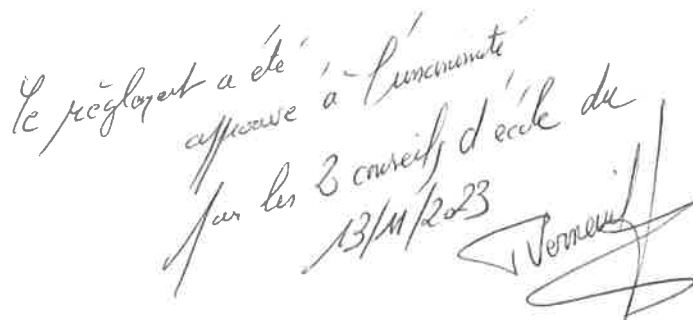 le règlement a été
approuvé à l'unanimité
par les 2 conseils d'école du
13/11/2023
Verneuil